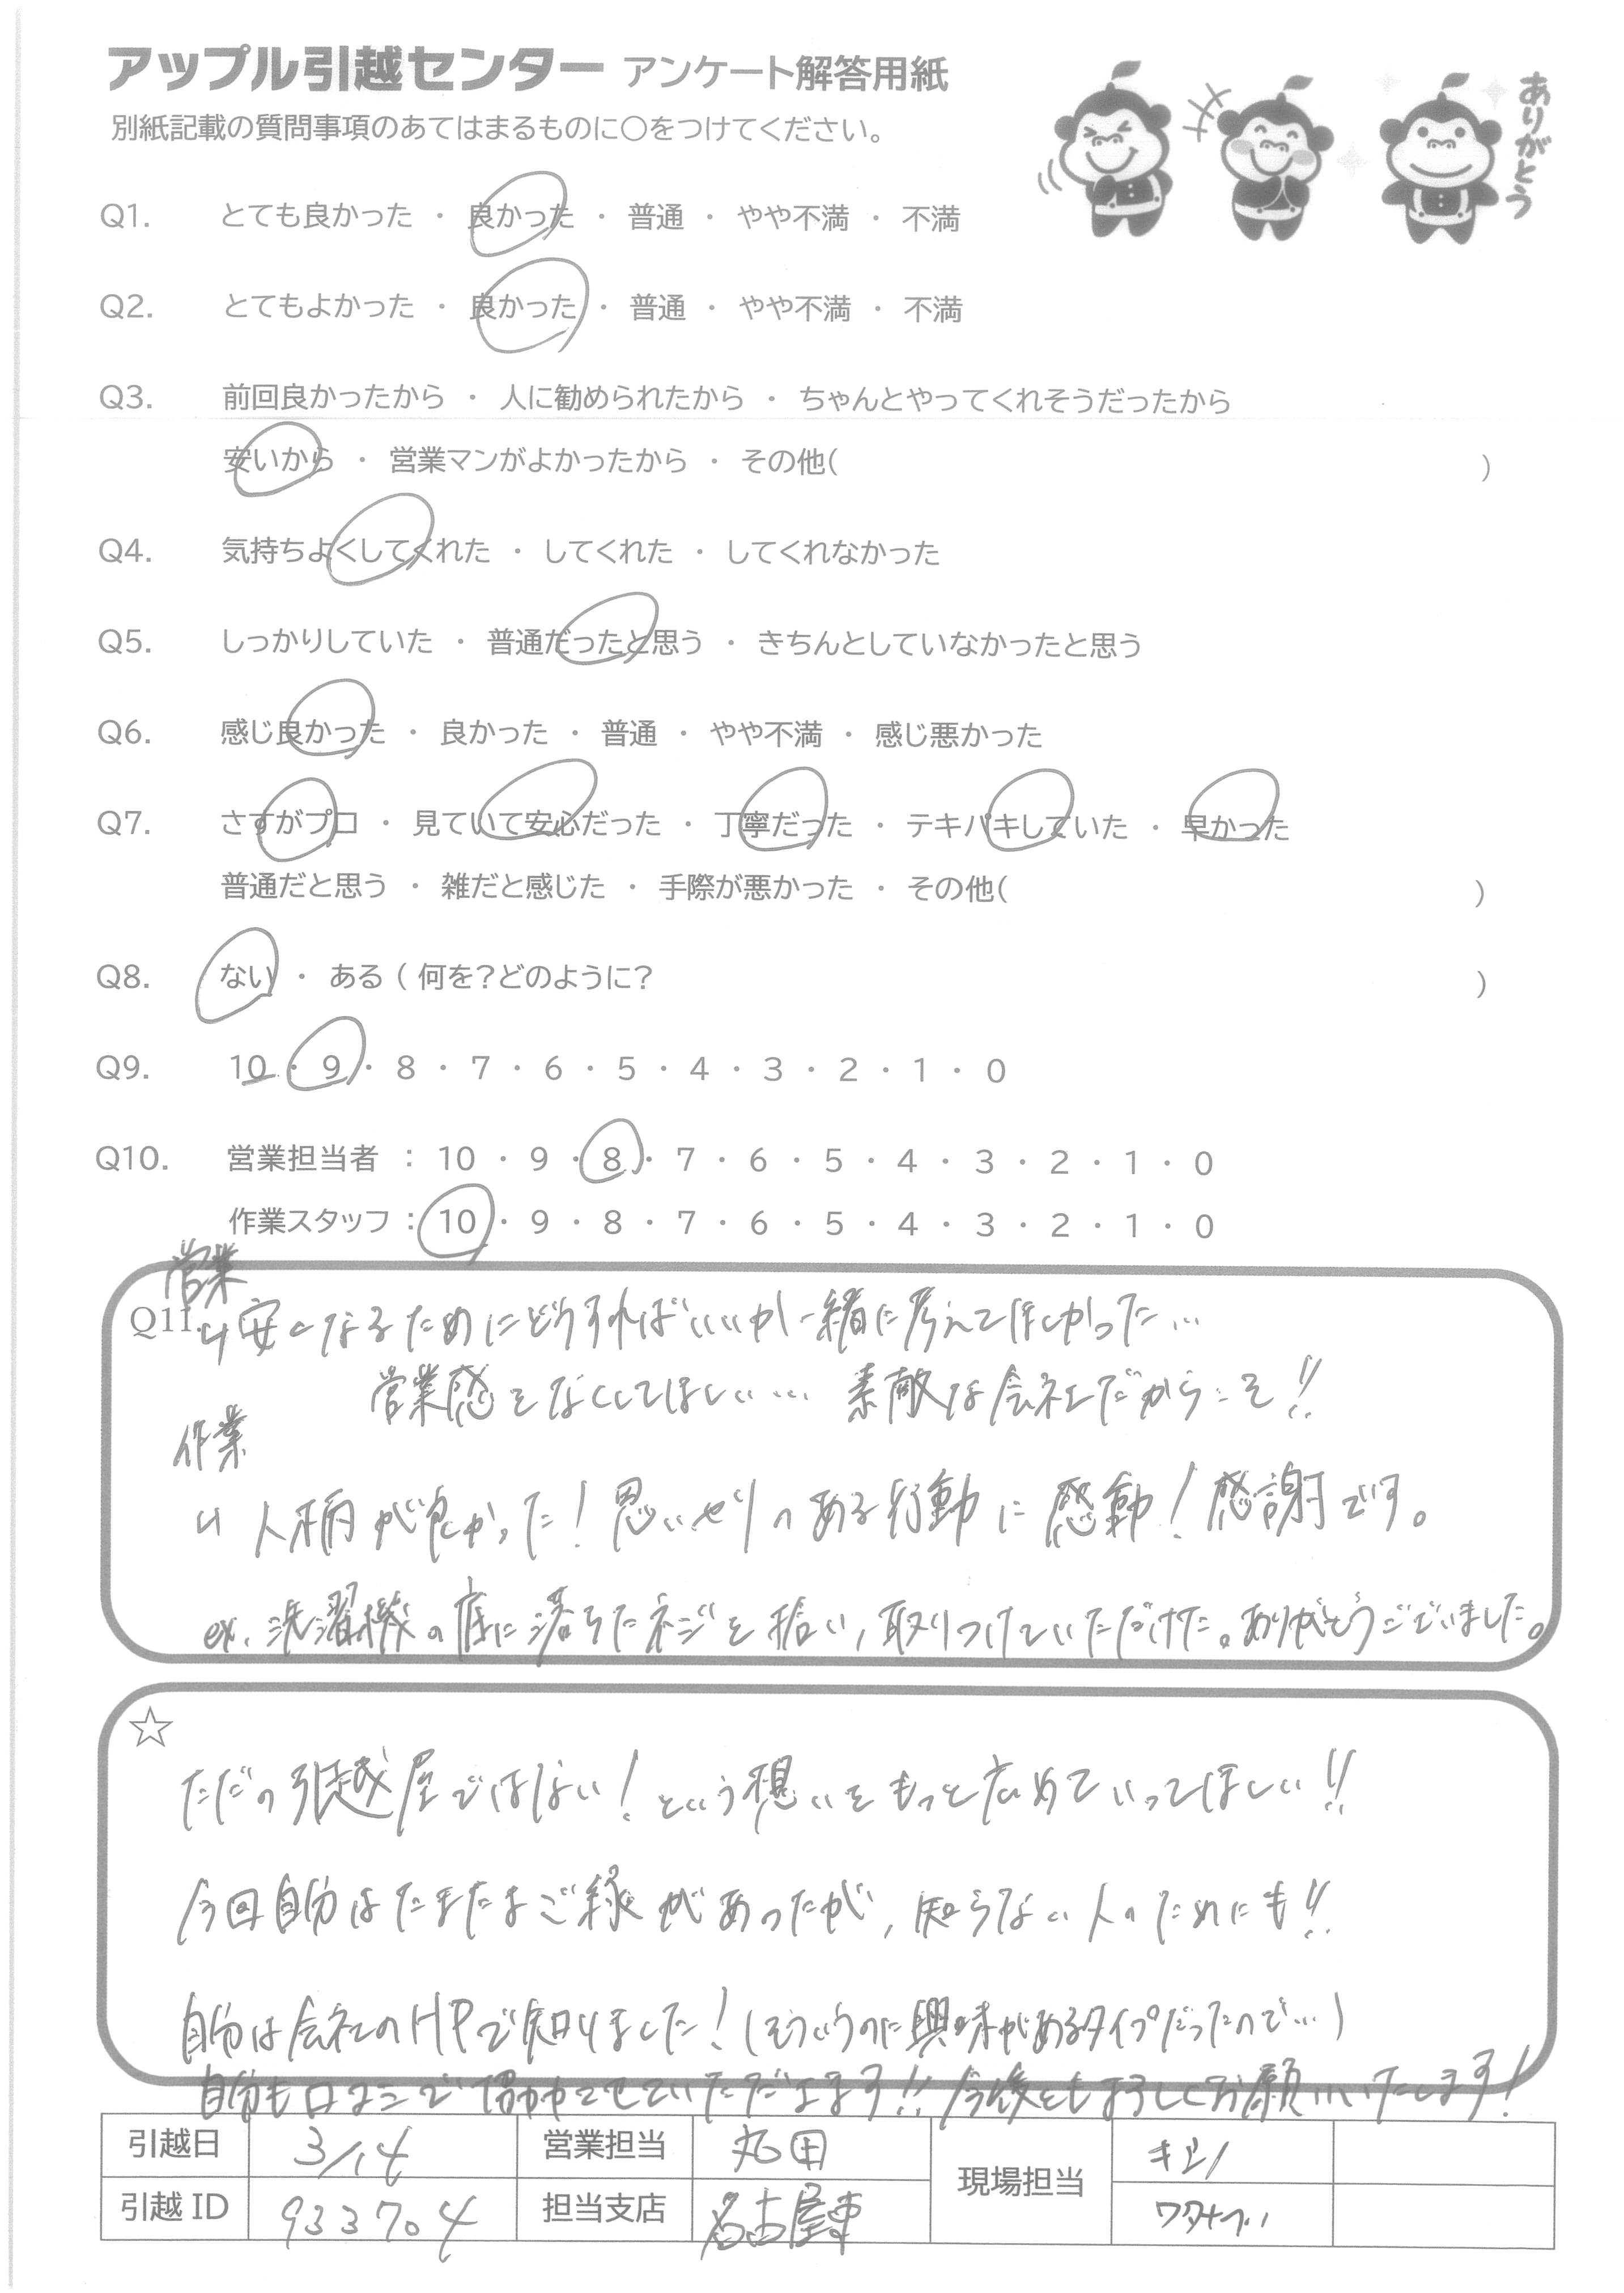 アップル引越センター アンケート解答用紙
ありがとう
別紙記載の質問事項のあてはまるものに○をつけてください。
Q1. とても良かった ・ 良かった ・ 普通 ・ やや不満 ・ 不満
Q2. とてもよかった ・ 良かった ・ 普通 ・ やや不満 ・ 不満
Q3. 前回良かったから ・ 人に勧められたから ・ ちゃんとやってくれそうだったから
安いから ・ 営業マンがよかったから ・ その他( )
Q4. 気持ちよくしてくれた ・ してくれた ・ してくれなかった
Q5. しっかりしていた ・ 普通だったと思う ・ きちんとしていなかったと思う
Q6. 感じ良かった ・ 良かった ・ 普通 ・ やや不満 ・ 感じ悪かった
Q7. さすがプロ ・ 見ていて安心だった ・ 丁寧だった ・ テキパキしていた ・ 早かった
普通だと思う ・ 雑だと感じた ・ 手際が悪かった ・ その他( )
Q8. ない ・ ある ( 何を?どのように? )
Q9. 10 ・ 9 ・ 8 ・ 7 ・ 6 ・ 5 ・ 4 ・ 3 ・ 2 ・ 1 ・ 0
Q10. 営業担当者 : 10 ・ 9 ・ 8 ・ 7 ・ 6 ・ 5 ・ 4 ・ 3 ・ 2 ・ 1 ・ 0
作業スタッフ : 10 ・ 9 ・ 8 ・ 7 ・ 6 ・ 5 ・ 4 ・ 3 ・ 2 ・ 1 ・ 0
営業
Q11. 安くなるためにどうすればいいか一緒に考えてほしかった…
営業感をなくしてほしい… 素敵な会社だからこそ!!
作業
人柄が良かった!思いやりのある行動に感動!感謝です。
ex. 洗濯機の底に落ちたネジを拾い、取りつけていただけた。ありがとうございました。
☆
ただの引越屋ではない!という想いをもっと広めていってほしい!!
今回自分はたまたまご縁があったが、知らない人のためにも!!
自分は会社のHPで知りました!(そういうのに興味があるタイプだったので…)
自分も口コミで協力させていただきます!!今後ともよろしくお願いいたします!
引越日 3/14 営業担当 丸田 現場担当
引越 ID 933704 担当支店 名古屋東 ワタナベ